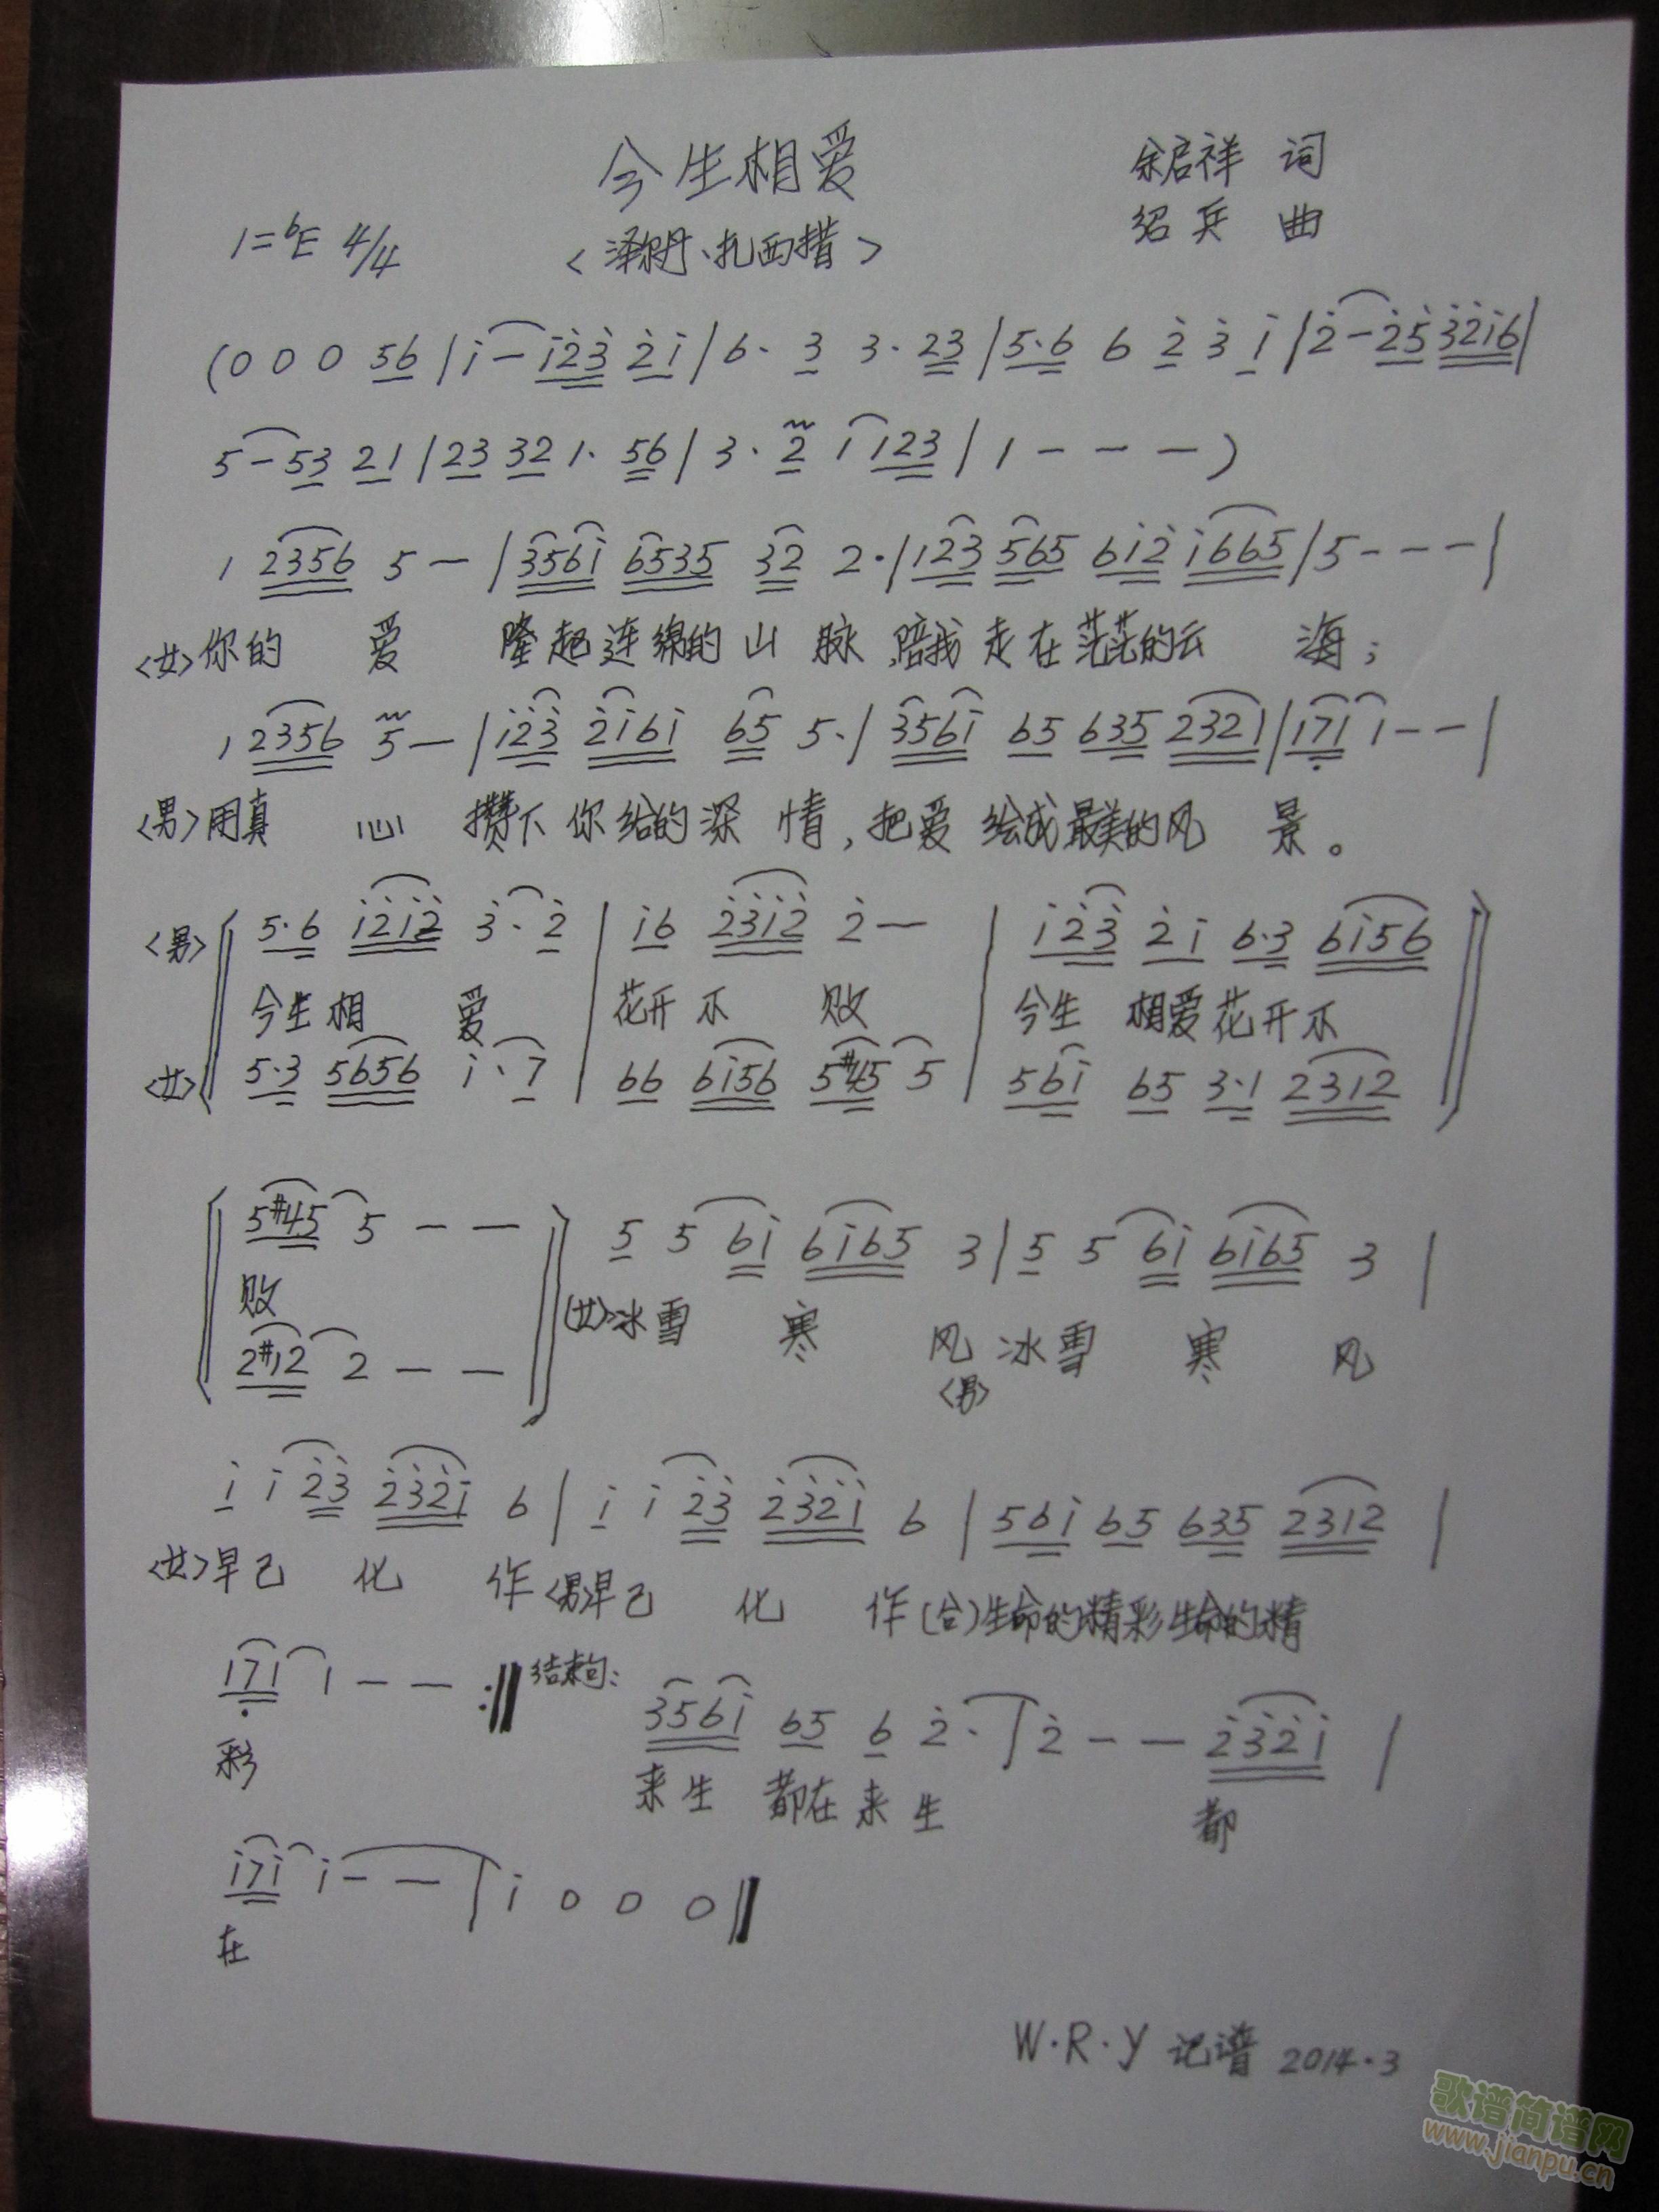 今生相爱
余启祥 词
1=bE 4/4
<泽尔丹、扎西措>
绍兵 曲
(0 0 0 56 | i - i23 2i | 6· 3 3· 23 | 5·6 6 2 3 i | 2 - 25 32i6 |
5 - 53 21 | 23 32 1· 56 | 3· 2 1 123 | 1 - - - )
1 2356 5 - | 356i 6535 32 2· | 123 565 6i2 i665 | 5 - - - |
<女>你的 爱 隆起连绵的山 脉,陪我走在茫茫的云 海;
1 2356 5 - | i23 2i6i 65 5· | 356i 65 635 2321 | 171 1 - - |
<男>用真 心 攒下你给的深 情,把爱绘成最美的风 景。
<男> 5·6 i2i2 3· 2 | i6 23i2 2 - | i23 2i 6·3 6i56
今生相 爱 花开不 败 今生 相爱花开不
<女> 5·3 5656 i· 7 | 66 6i56 5#45 5 | 56i 65 3·1 2312
5#45 5 - - 5 5 6i 6i65 3 | 5 5 6i 6i65 3 |
败
(女)冰雪 寒 风 冰雪 寒 风
2#12 2 - -
<男>
i i 23 232i 6 | i i 23 232i 6 | 56i 65 635 2312 |
<女>早已 化 作<男>早已 化 作(合)生命的精彩生命的精
171 1 - - :‖ 结束句: 356i 65 6 2· | 2 - - 232i |
彩 来生 都在来生 都
i7i i - - | i 0 0 0 ‖
在
W·R·Y 记谱 2014·3
歌谱简谱网
www.jianpu.cn